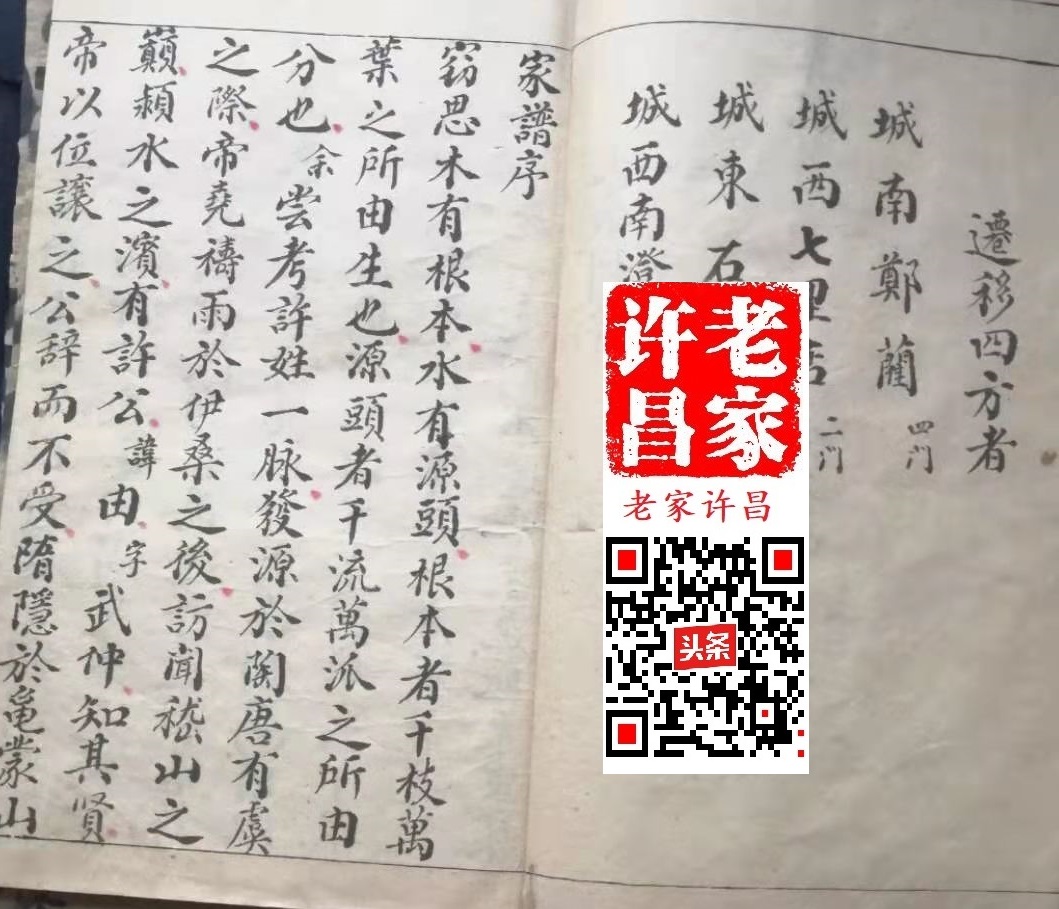 遷移四方者
城南鄭藺 四门
城西七里店 二门
城東石
城西南澄
家譜序
窃思木有根本水有源頭根本者千枝萬
葉之所由生也源頭者千流萬派之所由
分也余尝考許姓一脉發源於陶唐有虞
之際帝堯禱雨於伊桑之後訪聞嵇山之
巔潁水之濱有許公諱由字武仲知其賢
帝以位讓之公辞而不受隋隱於龜蒙山
老家
许昌
老家许昌
头条